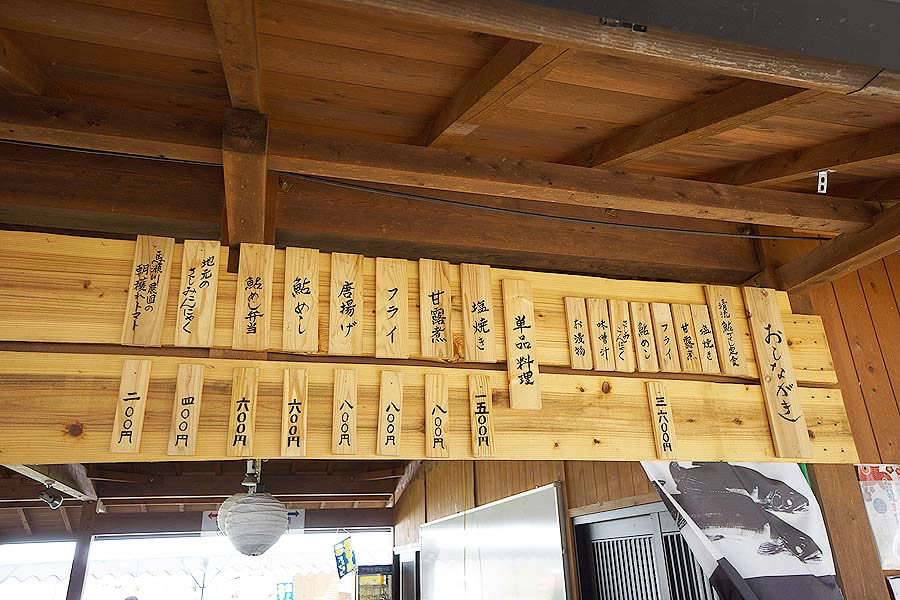 おしながき
清流 鮎づくし定食
塩焼
甘露煮
フライ
鮎めし
さしみこんにゃく
味噌汁
お漬物
三六〇〇円
単品料理
塩焼
一五〇〇円
甘露煮
八〇〇円
フライ
八〇〇円
唐揚げ
八〇〇円
鮎めし
六〇〇円
鮎めし弁当
六〇〇円
地元の
さしみこんにゃく
四〇〇円
馬瀬川農園の
朝穫れトマト
二〇〇円